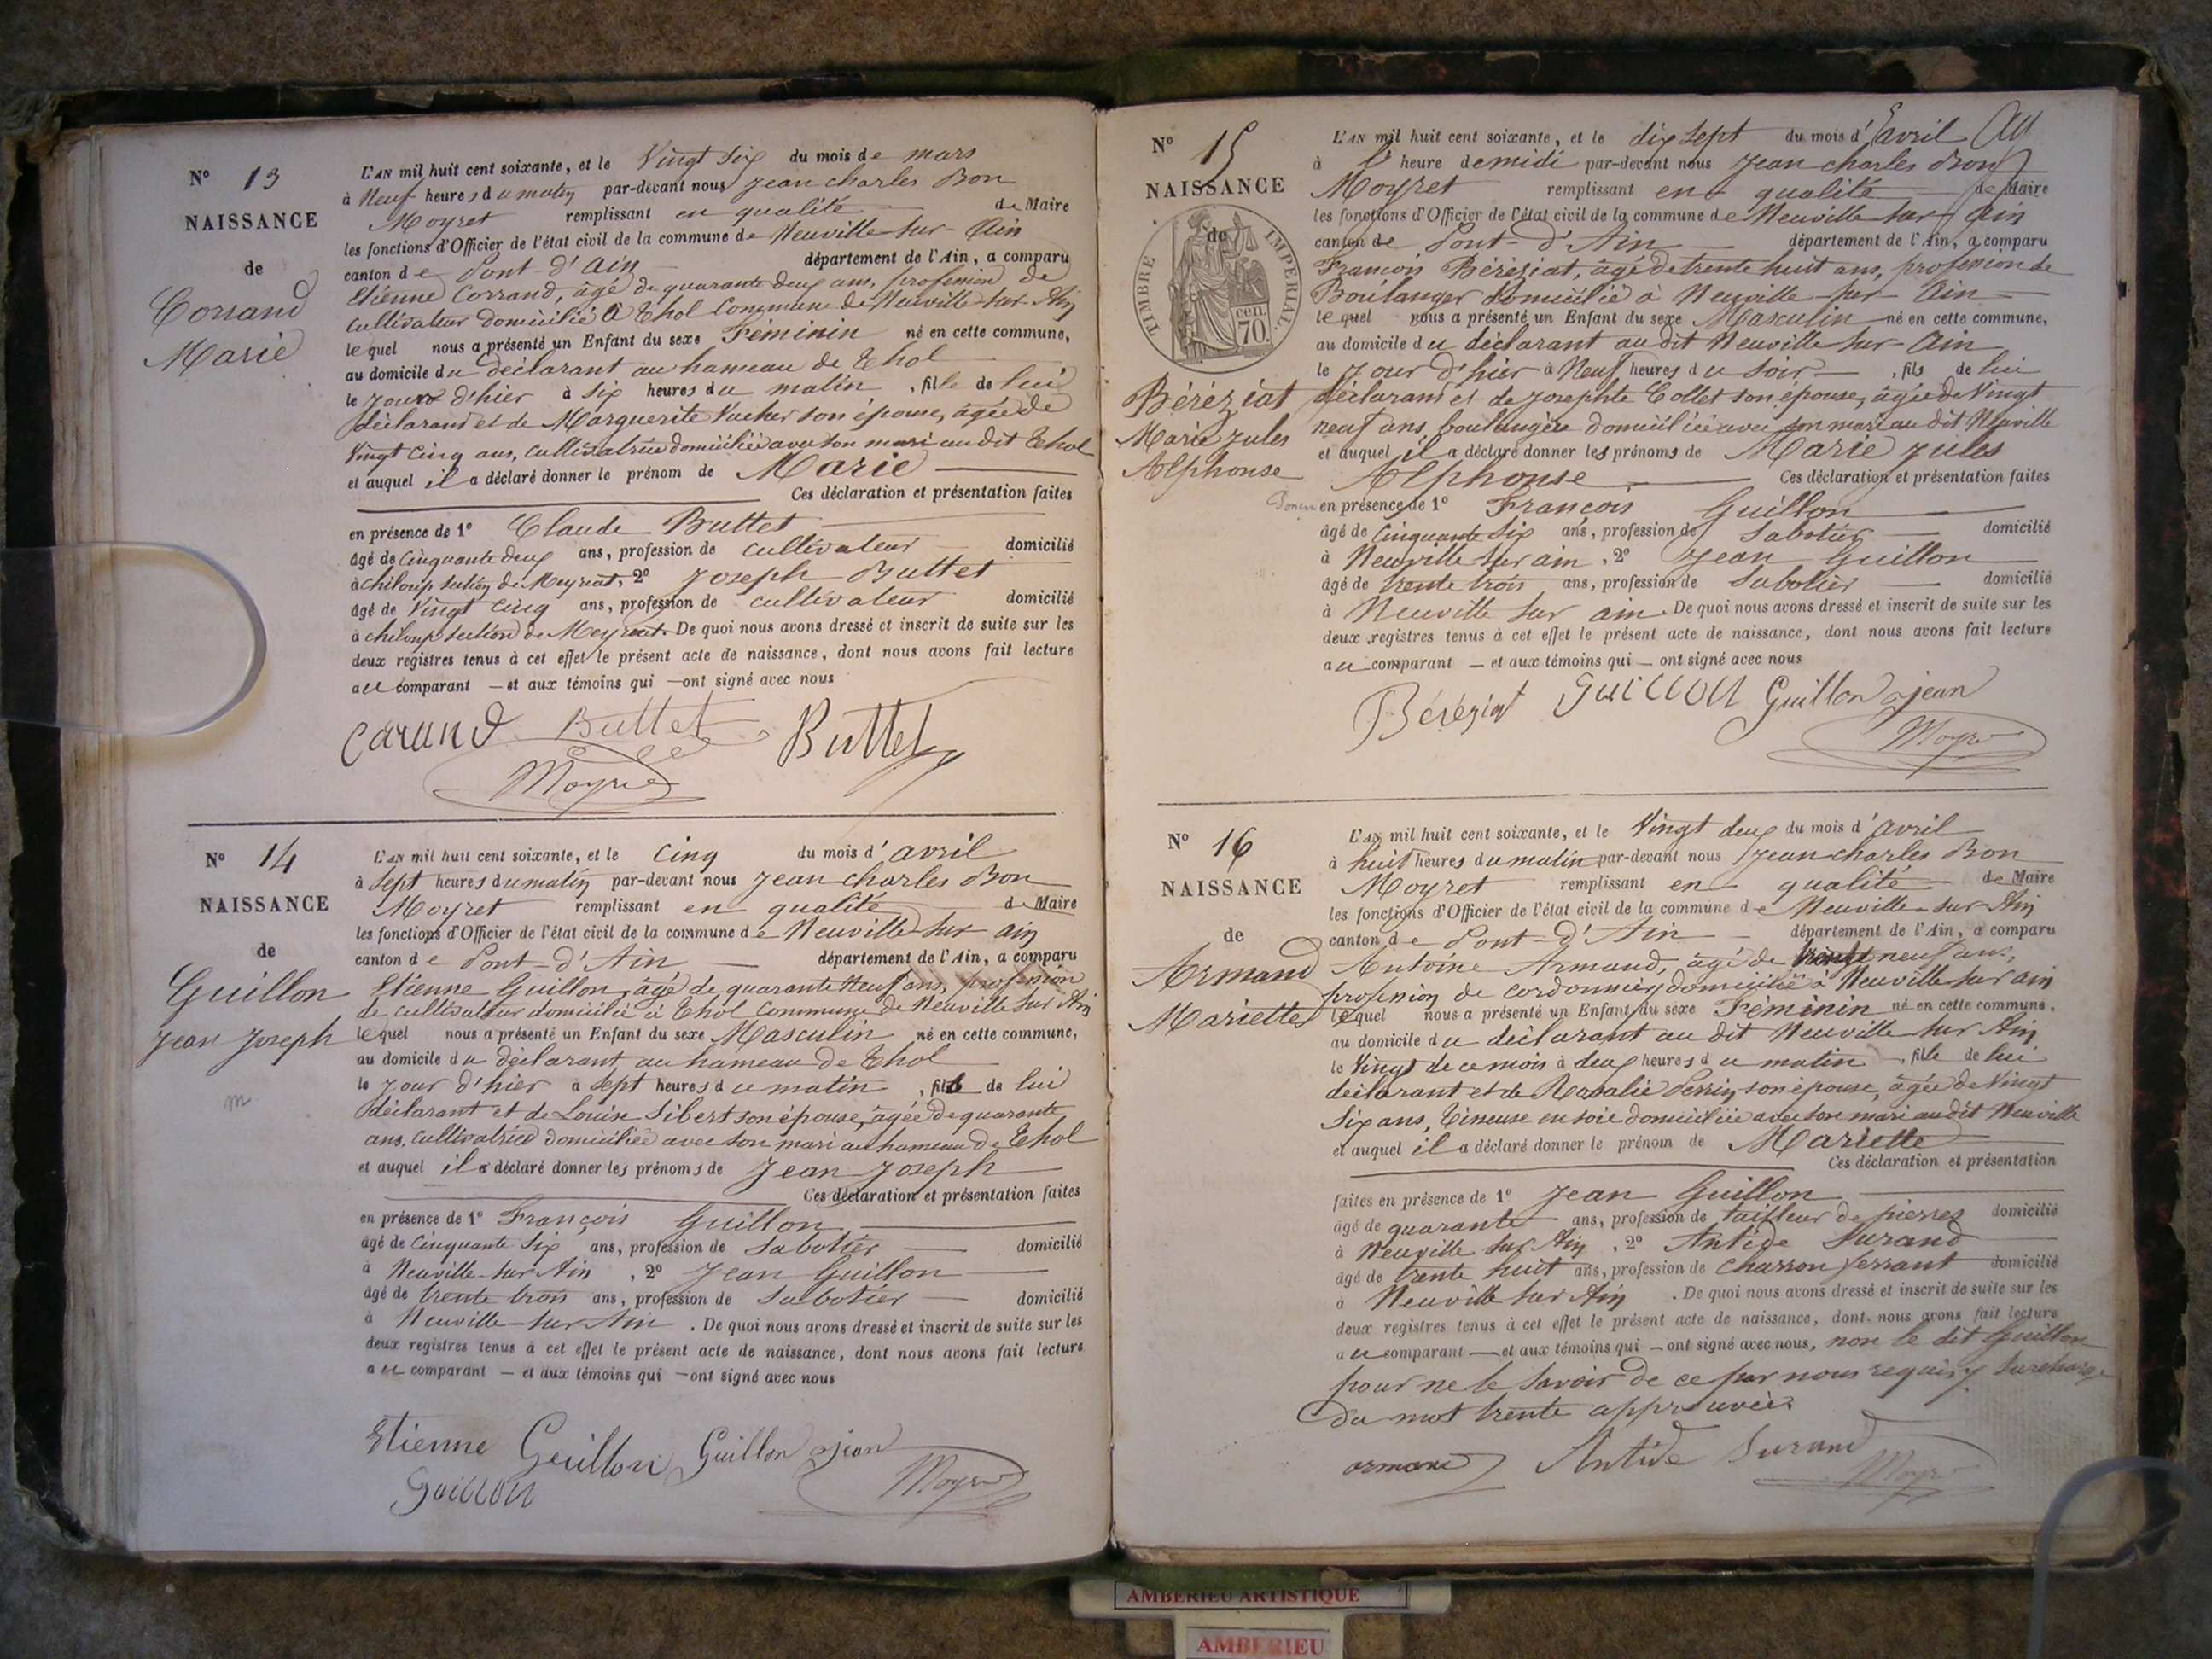 N° 13
NAISSANCE
de
Corrand
Marie
L'AN mil huit cent soixante, et le Vingt Six du mois de mars
à Neuf heures du matin par-devant nous Jean charles Bon
Moyret remplissant en qualité de Maire
les fonctions d'Officier de l'état civil de la commune de Neuville sur Ain
canton de Pont-d'Ain département de l'Ain, a comparu
Etienne Corrand, âgé de quarante deux ans, profession de
cultivateur domicilié à Thol Commune de Neuville sur Ain
lequel nous a présenté un Enfant du sexe Féminin né en cette commune,
au domicile du déclarant au hameau de Thol
le jour d'hier à Six heures du matin, fille de lui
déclarant et de Marguerite Vacher son épouse, âgée de
Vingt cinq ans, cultivatrice domiciliée avec son mari au dit Thol
et auquel il a déclaré donner le prénom de Marie
Ces déclaration et présentation faites
en présence de 1° Claude Buttet
âgé de Cinquante deux ans, profession de cultivateur domicilié
à chiloup section de Meyriat, 2° Joseph Buttet
âgé de Vingt cinq ans, profession de cultivateur domicilié
à chiloup section de Meyriat. De quoi nous avons dressé et inscrit de suite sur les
deux registres tenus à cet effet le présent acte de naissance, dont nous avons fait lecture
au comparant — et aux témoins qui — ont signé avec nous
Carand Buttet Buttet
Moyret
N° 14
NAISSANCE
de
Guillon
Jean Joseph
m
L'AN mil huit cent soixante, et le Cinq du mois d'avril
à Sept heures du matin par-devant nous Jean charles Bon
Moyret remplissant en qualité de Maire
les fonctions d'Officier de l'état civil de la commune de Neuville sur ain
canton de Pont-d'Ain département de l'Ain, a comparu
Etienne Guillon, âgé de quarante neuf ans, profession
de cultivateur domicilié à Thol Commune de Neuville sur Ain
lequel nous a présenté un Enfant du sexe Masculin né en cette commune,
au domicile du déclarant au hameau de Thol
le jour d'hier à Sept heures du matin, fils de lui
déclarant et de Louise Sibert son épouse, âgée de quarante
ans, cultivatrice domiciliée avec son mari au hameau de Thol
et auquel il a déclaré donner les prénoms de Jean Joseph
Ces déclaration et présentation faites
en présence de 1° François Guillon
âgé de Cinquante Six ans, profession de Sabotier domicilié
à Neuville-sur Ain, 2° Jean Guillon
âgé de trente trois ans, profession de Sabotier domicilié
à Neuville-sur Ain. De quoi nous avons dressé et inscrit de suite sur les
deux registres tenus à cet effet le présent acte de naissance, dont nous avons fait lecture
au comparant — et aux témoins qui — ont signé avec nous
Etienne Guillon Guillon jean
Guillon Moyret
N° 15
NAISSANCE
de
TIMBRE IMPERIAL
70. cen.
Béréziat
Marie Jules
Alphonse
L'AN mil huit cent soixante, et le dix Sept du mois d'avril
à l'heure de midi par-devant nous Jean charles Bon
Moyret remplissant en qualité de Maire
les fonctions d'Officier de l'état civil de la commune de Neuville sur Ain
canton de Pont-d'Ain département de l'Ain, a comparu
François Béréziat, âgé de trente huit ans, profession de
Boulanger domicilié à Neuville sur Ain
lequel nous a présenté un Enfant du sexe Masculin né en cette commune,
au domicile du déclarant au dit Neuville sur Ain
le Jour d'hier à Neuf heures du Soir, fils de lui
déclarant et de Josephte Collet son épouse, âgée de Vingt
neuf ans, boulangère domiciliée avec son mari au dit Neuville
et auquel il a déclaré donner les prénoms de Marie Jules
Alphonse Ces déclaration et présentation faites
en présence de 1° François Guillon
âgé de Cinquante Six ans, profession de Sabotier domicilié
à Neuville sur ain, 2° Jean Guillon
âgé de trente trois ans, profession de Sabotier domicilié
à Neuville sur ain. De quoi nous avons dressé et inscrit de suite sur les
deux registres tenus à cet effet le présent acte de naissance, dont nous avons fait lecture
au comparant — et aux témoins qui — ont signé avec nous
Béréziat Guillon Guillon jean
Moyret
N° 16
NAISSANCE
de
Armand
Mariette
L'AN mil huit cent soixante, et le Vingt deux du mois d'avril
à huit heures du matin par-devant nous Jean-charles Bon
Moyret remplissant en qualité de Maire
les fonctions d'Officier de l'état civil de la commune de Neuville-sur-Ain
canton de Pont-d'Ain département de l'Ain, a comparu
Antoine Armand, âgé de trente neuf ans,
profession de cordonnier domicilié à Neuville sur ain
lequel nous a présenté un Enfant du sexe Féminin né en cette commune,
au domicile du déclarant au dit Neuville sur Ain
le Vingt de ce mois à deux heures du matin, fille de lui
déclarant et de Rosalie Perrin son épouse, âgée de Vingt
Six ans, Tisseuse en soie domiciliée avec son mari au dit Neuville
et auquel il a déclaré donner le prénom de Mariette
Ces déclaration et présentation
faites en présence de 1° Jean Guillon
âgé de quarante ans, profession de tailleur de pierres domicilié
à Neuville sur Ain, 2° Antide Durand
âgé de trente huit ans, profession de charron ferrant domicilié
à Neuville sur Ain. De quoi nous avons dressé et inscrit de suite sur les
deux registres tenus à cet effet le présent acte de naissance, dont nous avons fait lecture
au comparant — et aux témoins qui — ont signé avec nous, non le dit Guillon
pour ne le Savoir de ce par nous requis, surcharge
du mot trente approuvée.
armand Antide Durand
Moyret
AMBERIEU ARTISTIQUE
AMBERIEU